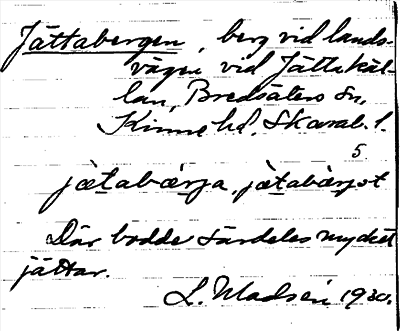 Jättabergen, berg vid lands-
vägen vid Jättakäl-
lan, Bredsäters sn,
Kinne hd. Skarab. l.
5
jätabærja, jätabærjət
Där bodde särdeles mycket
jättar.
L. Madsén 1930.